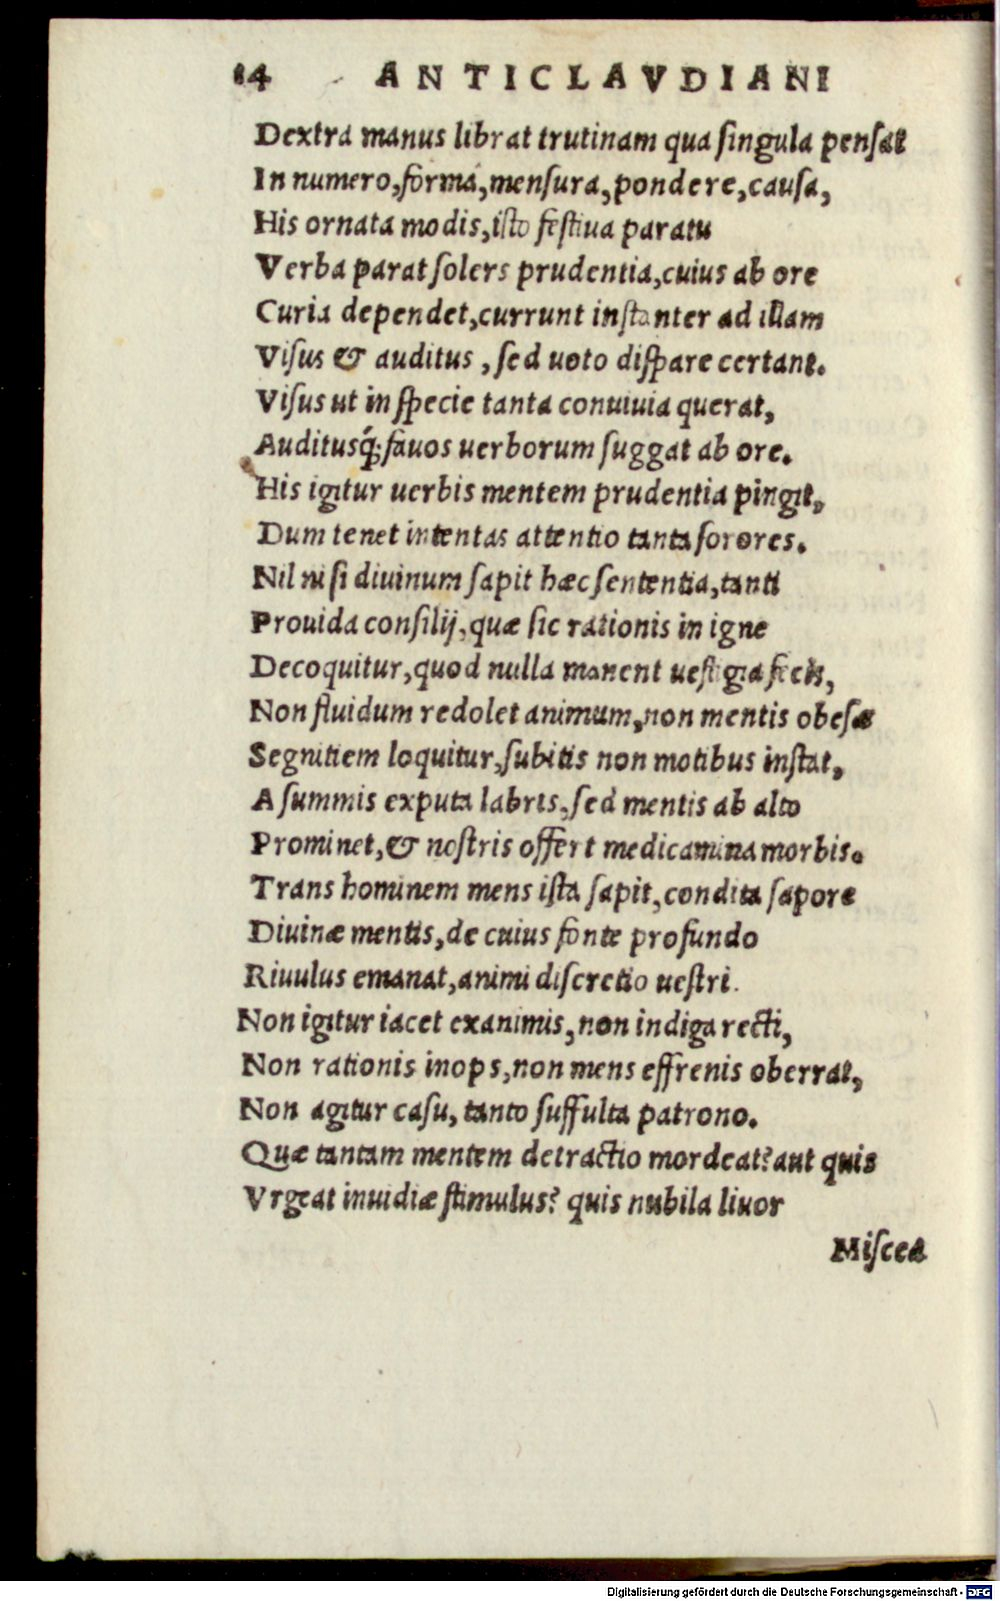 14 ANTICLAVDIANI
Dextra manus librat trutinam qua ſingula penſat
In numero,forma,menſura,pondere,cauſa,
His ornata modis,iſto feſtiua paratu
Verba parat ſolers prudentia,cuius ab ore
Curia dependet,currunt inſtanter ad illam
Viſus & auditus , ſed uoto diſpare certant.
Viſus ut in ſpecie tanta conuiuia querat,
Auditusq́; fauos uerborum ſuggat ab ore.
His igitur uerbis mentem prudentia pingit,
Dum tenet intentas attentio tanta ſorores.
Nil niſi diuinum ſapit hæc ſententia,tanti
Prouida conſilij,quæ ſic rationis in igne
Decoquitur,quod nulla manent ueſtigia fecis,
Non fluidum redolet animum,non mentis obeſæ
Segnitiem loquitur,ſubitis non motibus inſtat,
A ſummis exputa labris,ſed mentis ab alto
Prominet,& noſtris offert medicamina morbis.
Trans hominem mens iſta ſapit,condita ſapore
Diuinæ mentis,de cuius fonte profundo
Riuulus emanat,animi diſcretio ueſtri.
Non igitur iacet exanimis,non indiga recti,
Non rationis inops,non mens effrenis oberrat,
Non agitur caſu, tanto ſuffulta patrono.
Quæ tantam mentem detractio mordeat?aut quis
Vrgeat inuidiæ ſtimulus? quis nubila liuor
Miſcea
Digitalisierung gefördert durch die Deutsche Forschungsgemeinschaft - DFG